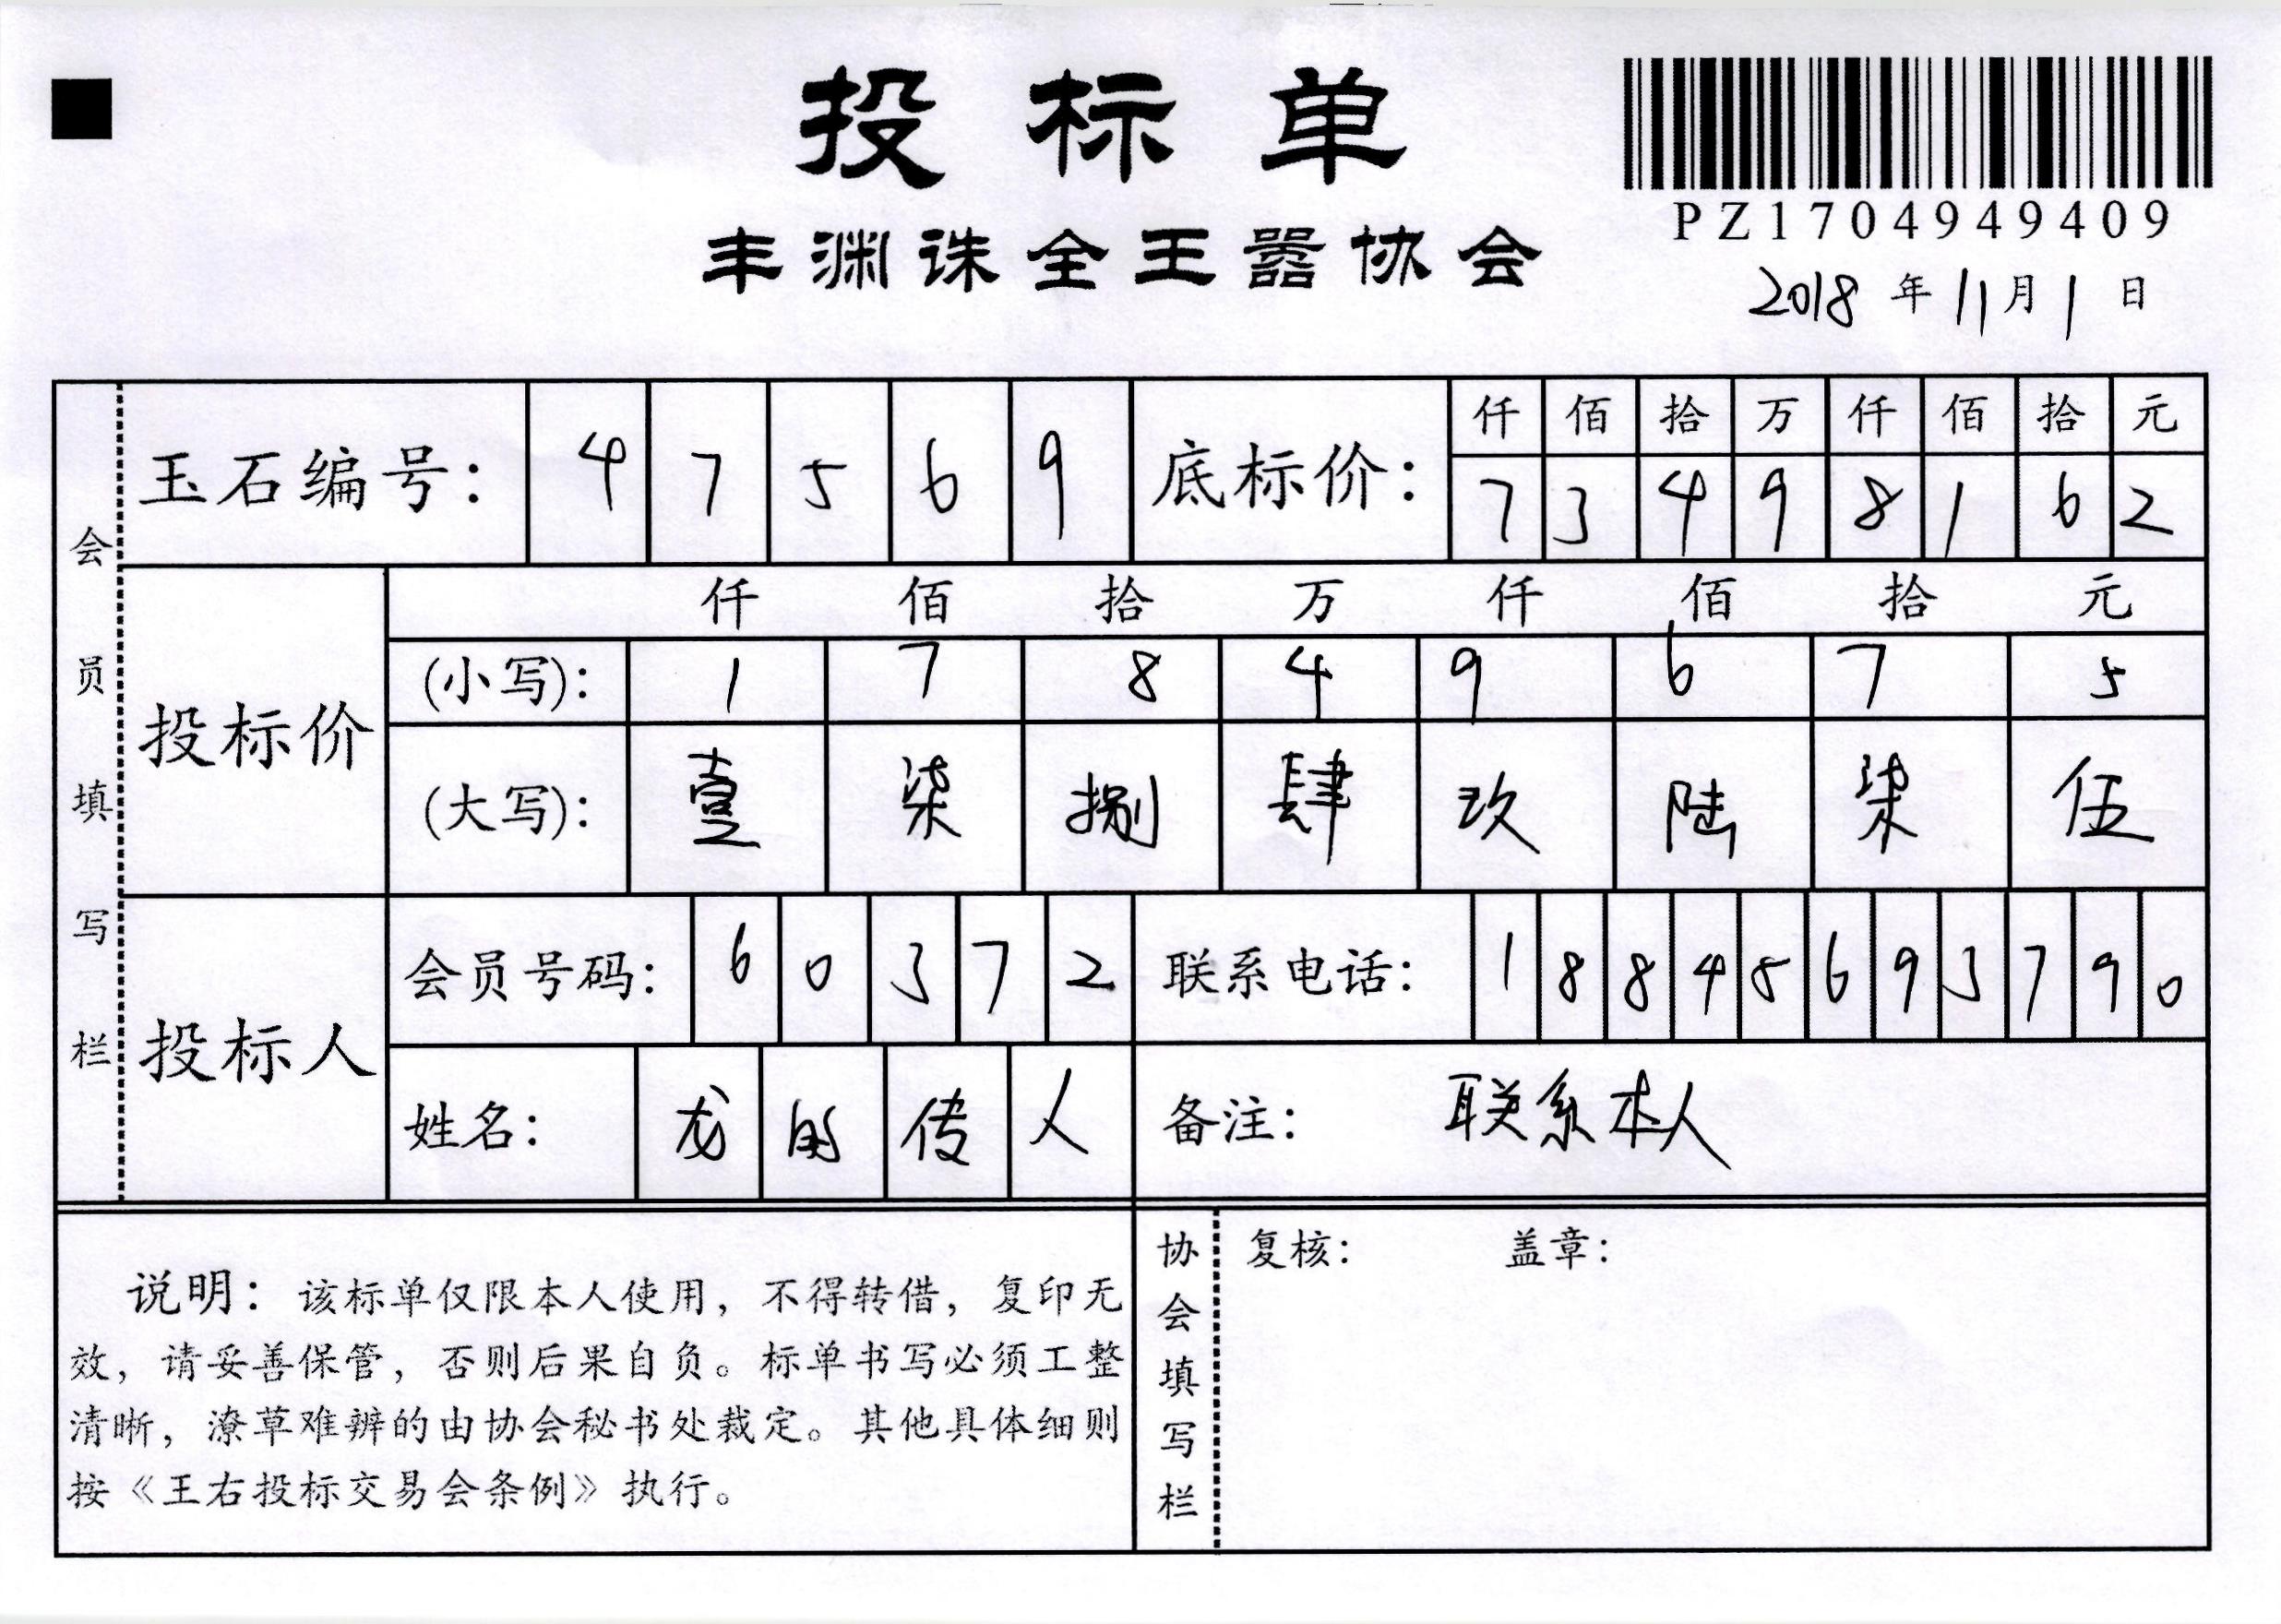 投标单
PZ1704949409
丰渊诛全王嚣协会
2018年11月1日
会员填写栏
玉石编号: 4 7 5 6 9
底标价: 仟 佰 拾 万 仟 佰 拾 元
7 3 4 9 8 1 6 2
投标价
仟 佰 拾 万 仟 佰 拾 元
(小写): 1 7 8 4 9 6 7 5
(大写): 壹 柒 捌 肆 玖 陆 柒 伍
投标人
会员号码: 6 0 3 7 2
联系电话: 1 8 8 4 5 6 9 3 7 9 0
姓名: 龙 的 传 人
备注: 联系本人
说明: 该标单仅限本人使用, 不得转借, 复印无
效, 请妥善保管, 否则后果自负。标单书写必须工整
清晰, 潦草难辨的由协会秘书处裁定。其他具体细则
按《王右投标交易会条例》执行。
协会填写栏
复核: 盖章: